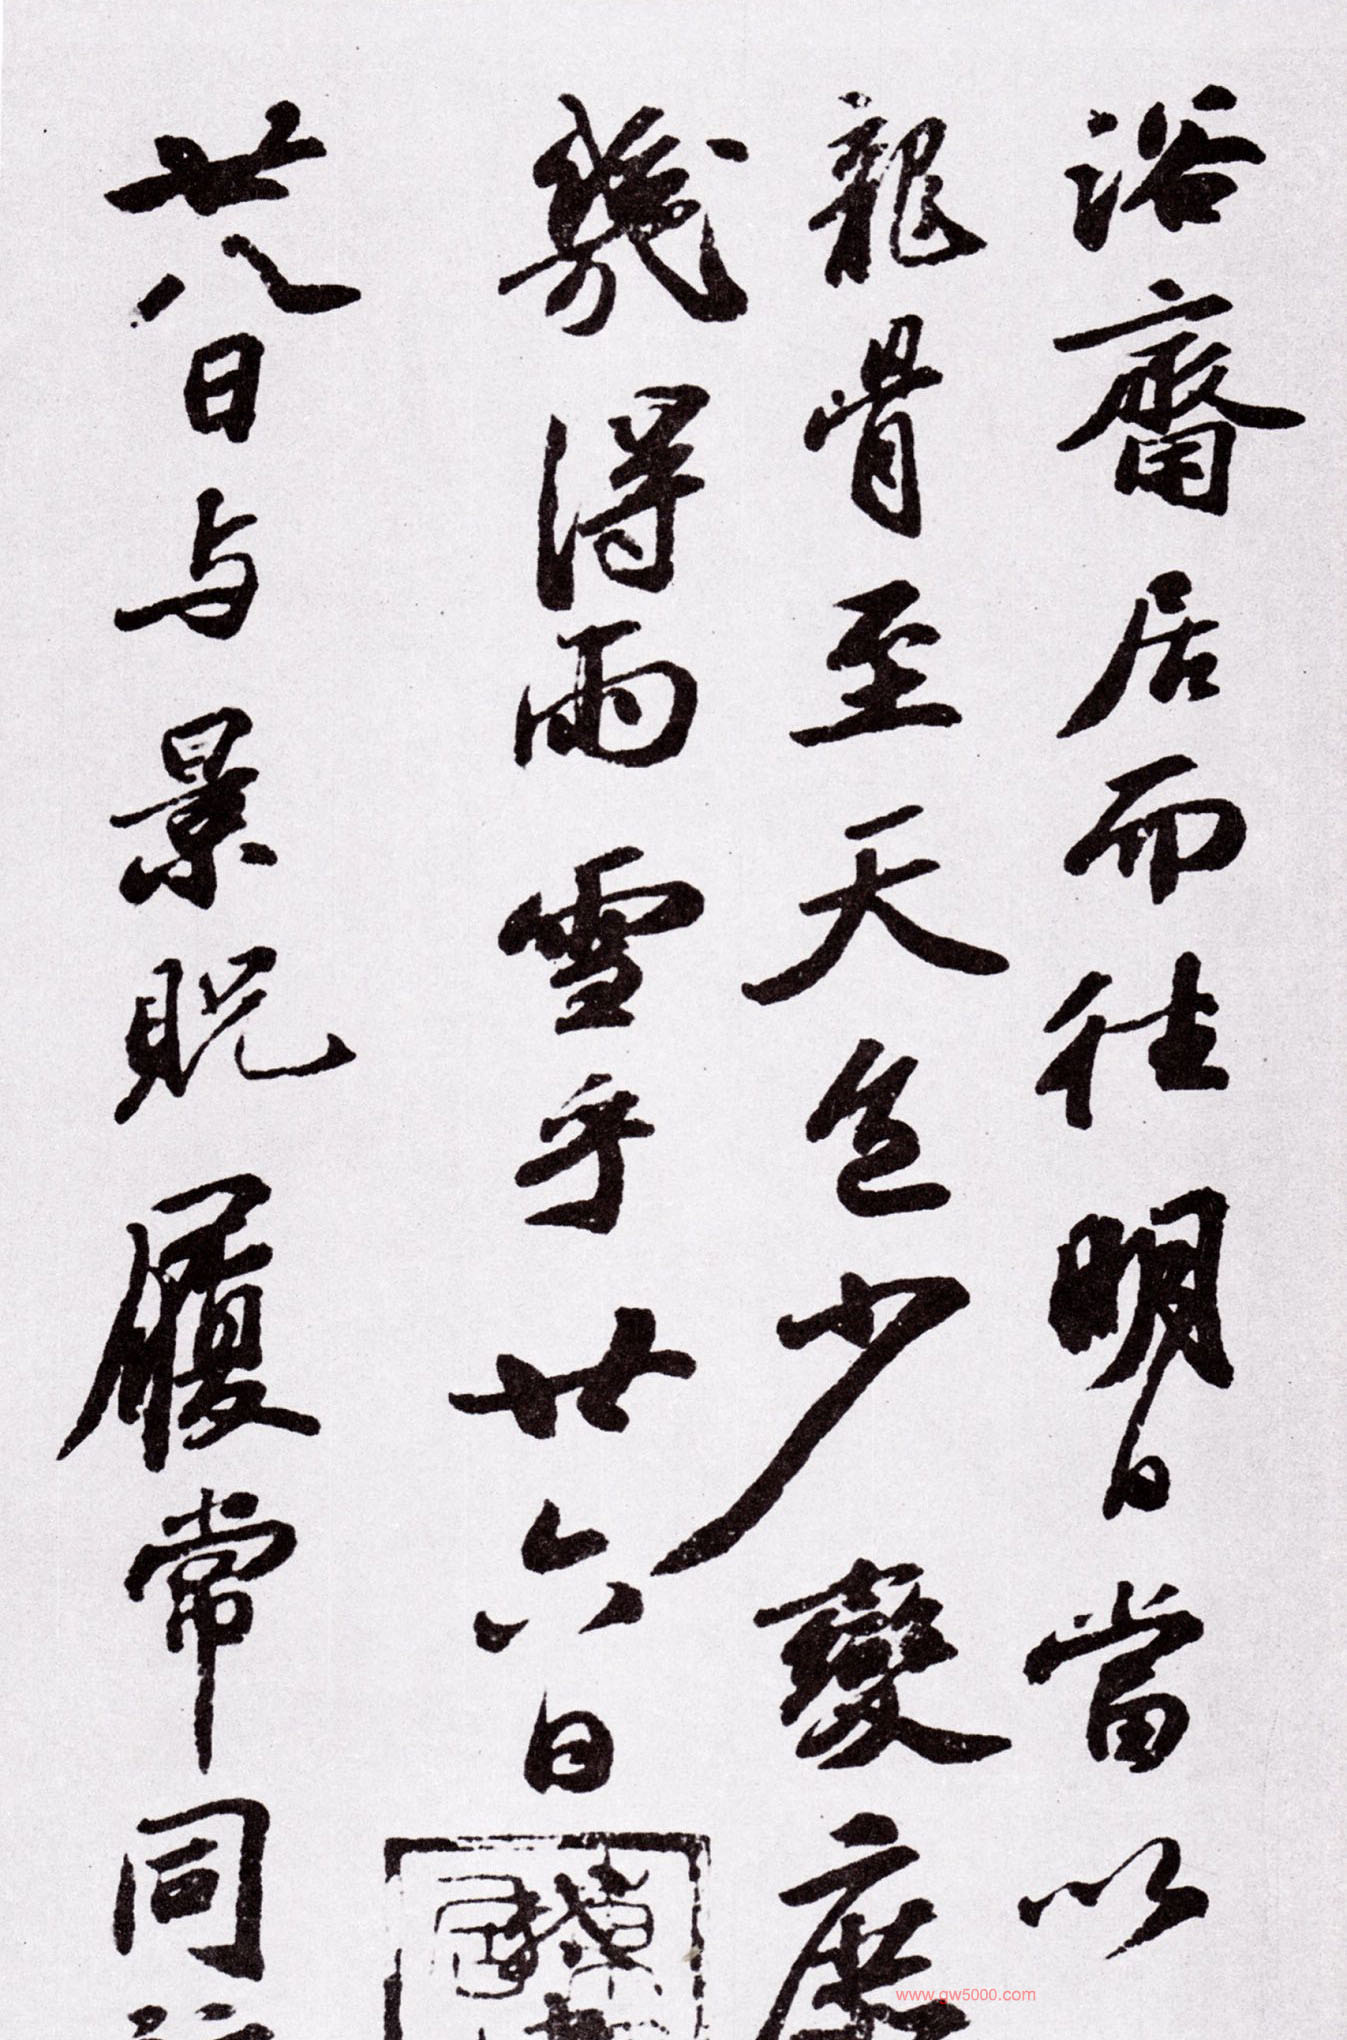 浴齋居而往明日當以
龍骨至天色少變庶
幾得雨雪乎廿六日
廿八日与景貺履常同
www.gw5000.com